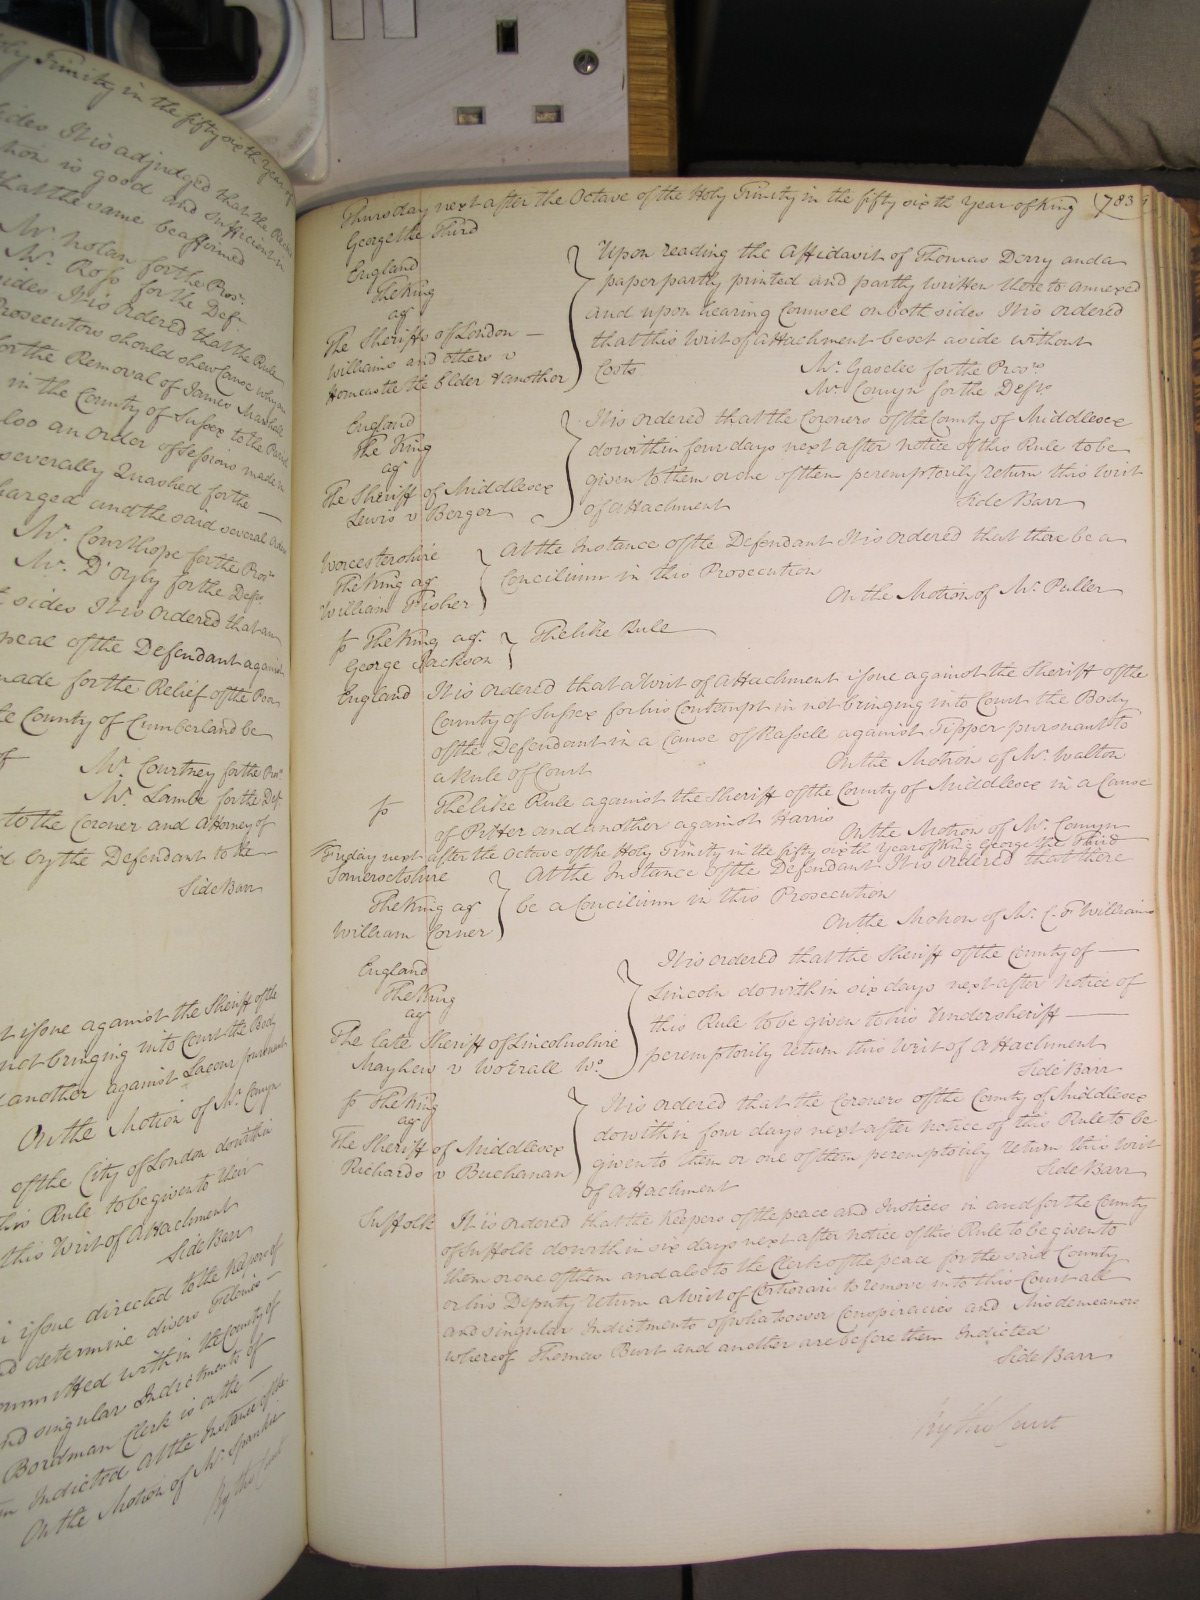 Holy Trinity in the fifty sixth Year of
sides It is adjudged that the
tion is good and sufficient in
that the same be affirmed
Mr. Nolan for the Pros.
Mr. Ross for the Deft.
sides It is Ordered that the Rule
Prosecutors should shew Cause why an
for the Removal of James Marshall
in the County of Sussex to the Parish
also an Order of Sessions made in
severally Quashed for the —
charged and the said several Orders
Mr. Courthope for the Pros.
Mr. D'Oyly for the Deft.
sides It is Ordered that an
peal of the Defendant against
made for the Relief of the Poor
the County of Cumberland be
Mr. Courtney for the Pros.
Mr. Lambe for the Deft.
to the Coroner and Attorney of
d by the Defendant to the —
Side Barr
t issue against the Sheriff of the
not bringing into Court the Body
another against Lacour pursuant
On the Motion of Mr. Comyn
of the City of London do within
this Rule to be given to their
this Writ of Attachment
Side Barr
i issue directed to the Keepers of
nd determine divers Felonies —
ommitted within the County of
nd singular Indictments of
Boardman Clerk is on the —
Indicted At the Instance of the
On the Motion of Mr. Spankie
By the Court
Thursday next after the Octave of the Holy Trinity in the fifty sixth Year of King (783)
George the Third
England
The King
agt
The Sheriffs of London —
Williams and others v
Horncastle the Elder & another
Upon reading the Affidavit of Thomas Derry and a
paper partly printed and partly written thereto annexed
and upon hearing Counsel on both sides It is ordered
that this Writ of Attachment be set aside without
Costs
Mr. Gaselee for the Pros.
Mr. Comyn for the Deft.
England
The King
agt
The Sheriff of Middlesex
Lewis v Berger
It is ordered that the Coroners of the County of Middlesex
do within four days next after notice of this Rule to be
given to them or one of them peremptorily return this Writ
of Attachment
Side Barr
Worcestershire
The King agt
William Fisher
At the Instance of the Defendant It is ordered that there be a
Concilium in this Prosecution
On the Motion of Mr. Puller
The King agt.
George Jackson
The like Rule
England It is ordered that a Writ of Attachment issue against the Sheriff of the
County of Sussex for his Contempt in not bringing into Court the Body
of the Defendant in a Cause of Russell against Tipper pursuant to
a Rule of Court
On the Motion of Mr. Walton
The like Rule against the Sheriff of the County of Middlesex in a Cause
of Pitter and another against Harris
On the Motion of Mr. Comyn
Friday next after the Octave of the Holy Trinity in the fifty sixth Year of King George the Third
Somersetshire
The King agt
William Corner
At the Instance of the Defendant It is ordered that there
be a Concilium in this Prosecution
On the Motion of Mr. C. F. Williams
England
The King
agt
The late Sheriff of Lincolnshire
Mayhew v Wotrall
It is ordered that the Sheriff of the County of —
Lincoln do within six days next after Notice of
this Rule to be given to his Undersheriff —
peremptorily return this Writ of Attachment
Side Barr
The King
agt
The Sheriff of Middlesex
Richards v Buchanan
It is ordered that the Coroners of the County of Middlesex
do within four days next after Notice of this Rule to be
given to them or one of them peremptorily return this Writ
of Attachment
Side Barr
Suffolk It is ordered that the Keepers of the peace and Justices in and for the County
of Suffolk do within six days next after notice of this Rule to be given to
them or one of them and also to the Clerk of the peace for the said County
or his Deputy return a Writ of Certiorari to remove into this Court all
and singular Indictments of whatsoever Conspiracies and Misdemeanors
whereof Thomas Burt and another are before them Indicted
Side Barr
By the Court